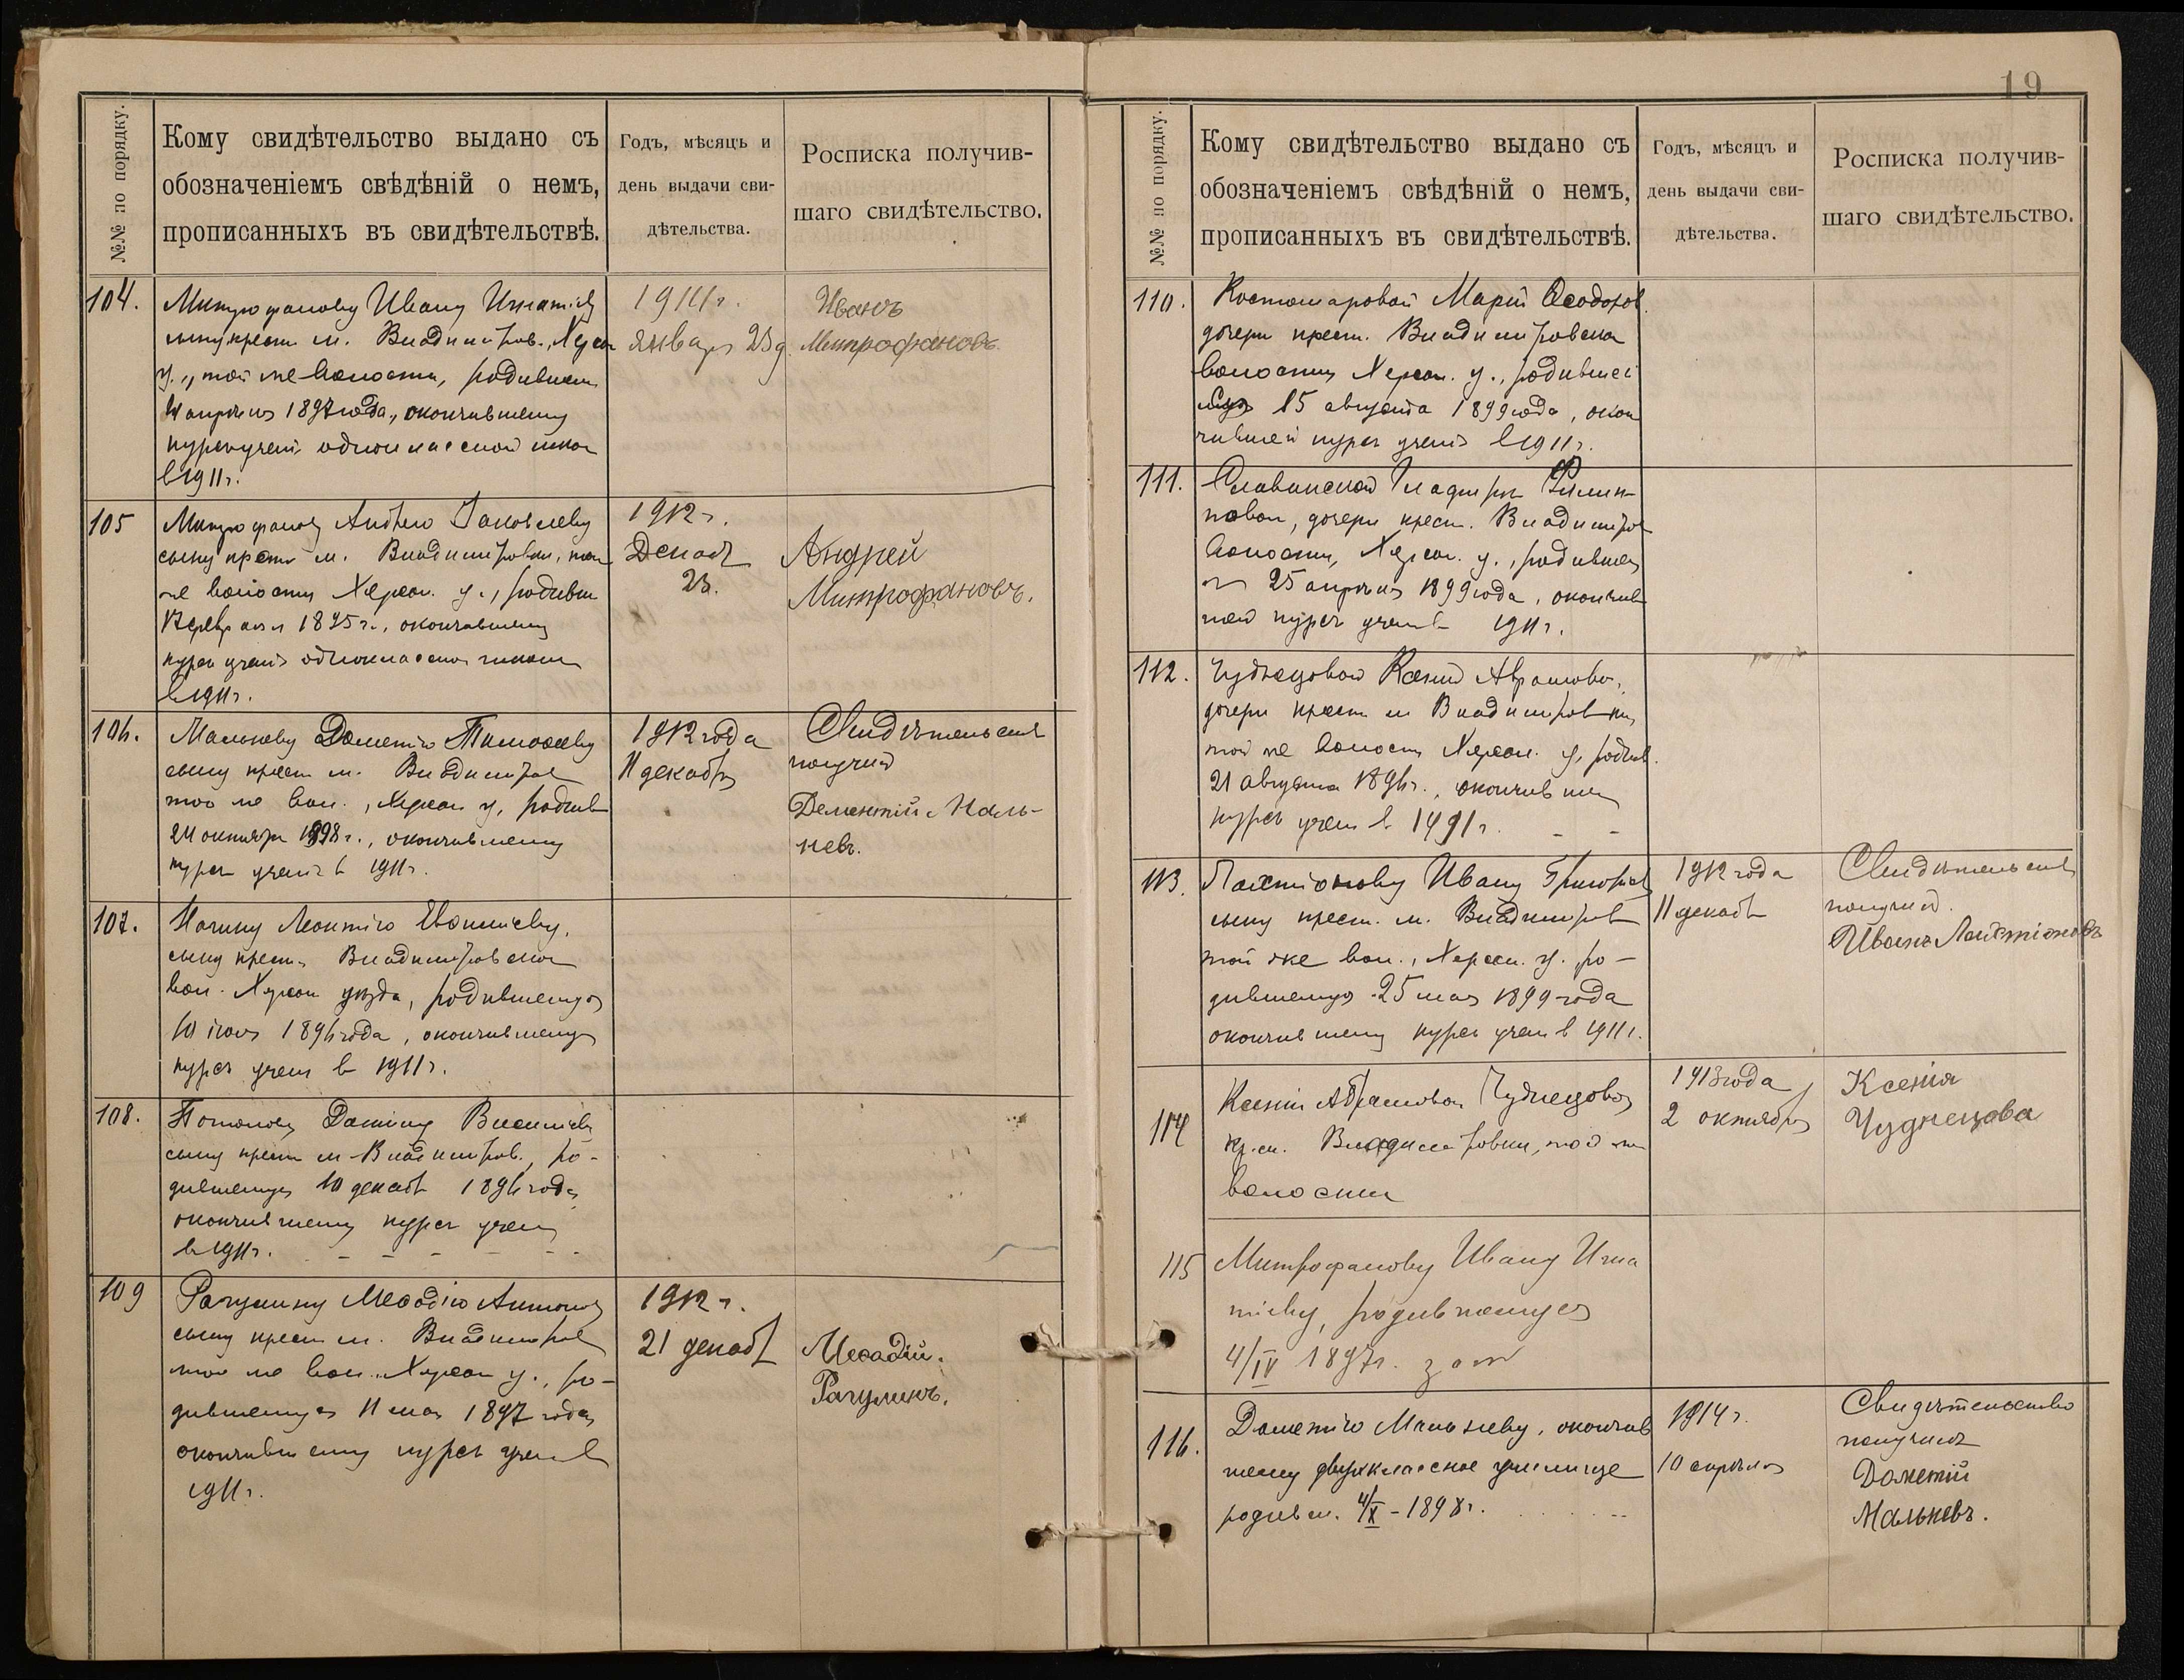 №№ по порядку.
Кому свидѣтельство выдано съ
обозначеніемъ свѣдѣній о немъ,
прописанныхъ въ свидѣтельствѣ.
Годъ, мѣсяцъ и
день выдачи сви-
дѣтельства.
Росписка получив-
шаго свидѣтельство.
104.
Митрофанову Ивану Игнатіев
сыну крест. м. Владиміров., Херсон
у., той же волости, родившем.
4 апрѣля 1897 года, окончившему
курс учен. одноклассной школ
в 1911 г.
1914 г.
Январ 23 д.
Иванъ
Митрофановъ
105
Митрофанов Андрею Яковлеву
сыну крест м. Владиміровки, той
же волости Херсон. у., родивш
февраля 1895 г., окончившему
курс учен одноклассной школы
в 1911 г.
1912 г.
Декаб
23.
Андрей
Митрофановъ.
106.
Малькеву Дометію Тимофееву
сыну крест м. Владиміров
той же вол., Херсон у, родив
24 октября 1898 г., окончившему
курс учен в 1911 г.
1912 года
11 декабря
Свидѣтельств
получил
Дементій Маль-
кевъ.
107.
Леонтію
сыну крест. Владиміровской
вол. Херсон уѣзда, родившемуся
10 1896 года, окончившему
курс учен в 1911 г.
108.
Василіев
сыну крест м. Владиміров., ро-
дившемуся 10 декаб 1896 года
окончившему курс учен
в 1911 г.
109
Рагулину Меѳодію Антонов
сыну крест м. Владиміров
той же вол. Херсон у., ро-
дившемуся 11 мая 1897 года
окончившему курс учен в
1911 г.
1912 г.
21 декаб
Меѳадій
Рагулинъ.
19
№№ по порядку.
Кому свидѣтельство выдано съ
обозначеніемъ свѣдѣній о немъ,
прописанныхъ въ свидѣтельствѣ.
Годъ, мѣсяцъ и
день выдачи сви-
дѣтельства.
Росписка получив-
шаго свидѣтельство.
110.
Костомаровой Маріи Ѳеодотов.
дочери крест. Владиміровской
волости Херсон. у., родившей
15 августа 1899 года, окон
чившей курс учен в 1911 г.
111.
Славинской Гликеріи Филип-
повой, дочери крест. Владиміров
волости, Херсон. у., родившей
25 апрѣля 1899 года, окончив
шей курс учен в 1911 г.
112.
Чуднецовой Ксеніи Абрамово.
дочери крест м Владиміровки,
той же волости Херсон. у, родив.
21 августа 1896 г., окончившей
курс учен в 1911 г. - -
113.
Лактіонову Ивану Григорьев
сыну крест. м. Владиміров
той же вол., Херсон. у. ро-
дившемуся 25 мая 1899 года
окончившему курс учен в 1911 г.
1912 года
11 декаб
Свидѣтельств
получил.
Иванъ Лактіоновъ
114
Ксеніи Абрамовой Чуднецовой
кр. м. Владиміровки, той же
волости
1913 года
2 октября
Ксенія
Чуднецова
115
Митрофанову Ивану Игна
тіеву, родившемуся
4/IV 1897 г.
116.
Дометію Малькеву, окончив
шему двухклассное училище
родивш. 4/X - 1898 г.
1914 г.
10 апрѣля
Свидѣтельство
получилъ
Дометій
Малькевъ.